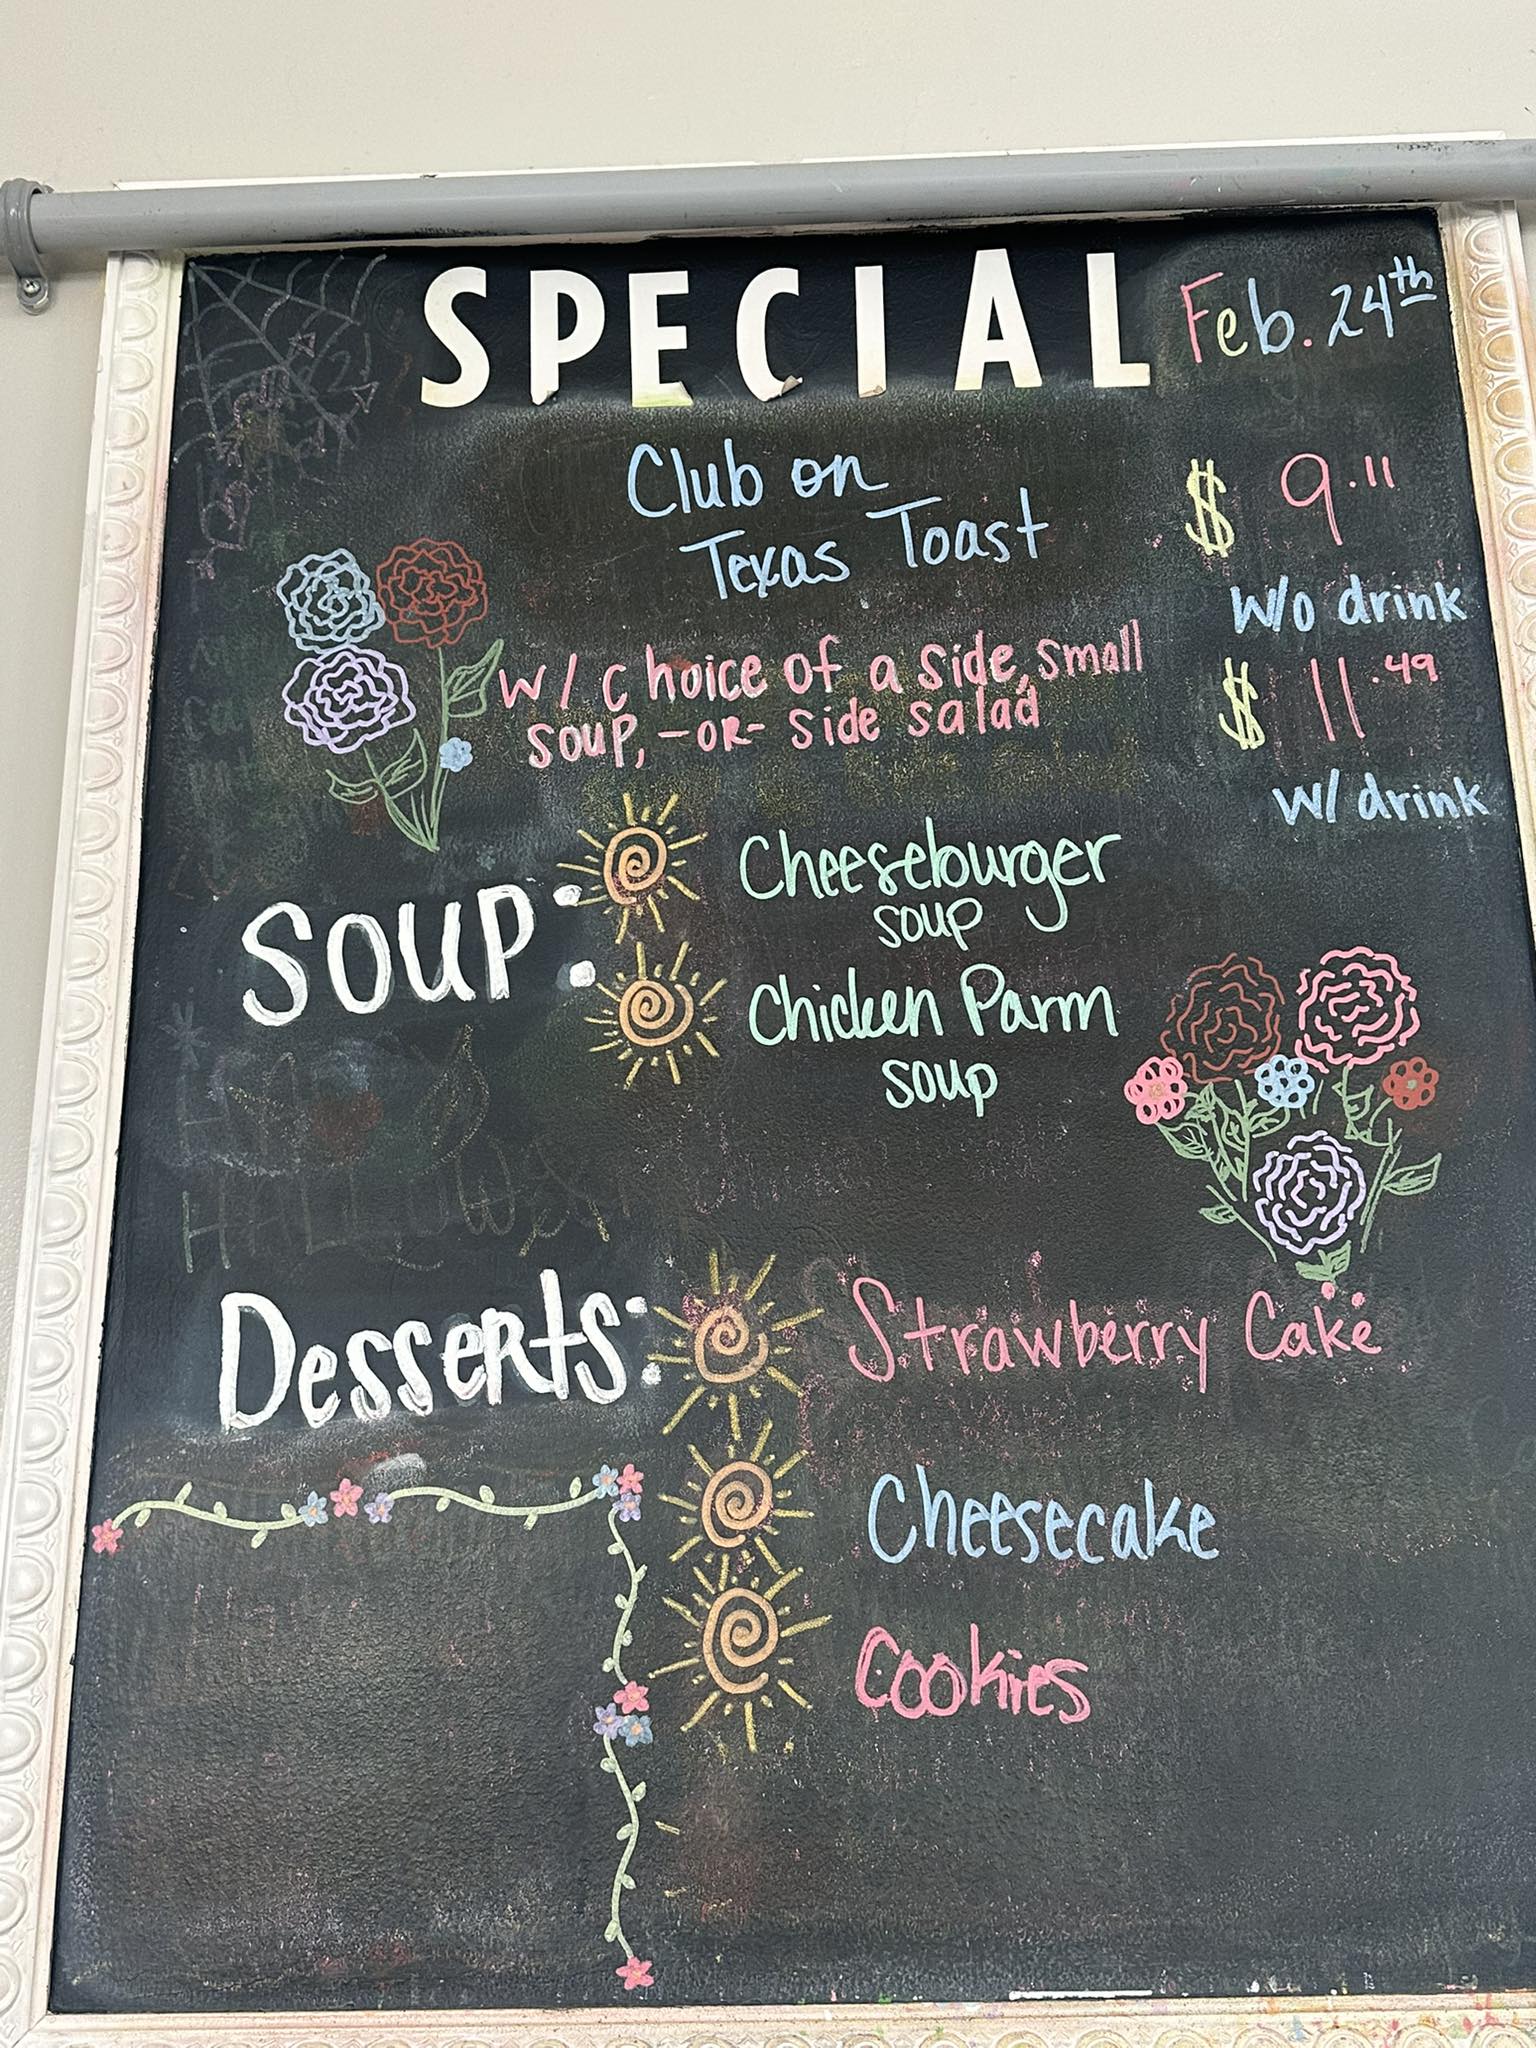 SPECIAL Feb. 24th
Club on
Texas Toast
$ 9.11
w/o drink
w/ choice of a side, small
soup, -OR- side salad
$ 11.49
w/ drink
Soup:
Cheeseburger
soup
Chicken Parm
soup
Desserts:
Strawberry Cake
Cheesecake
Cookies